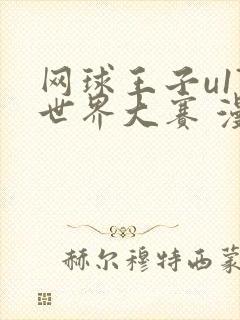 网球王子u17
世界大赛 漫
赫尔穆特西蒙